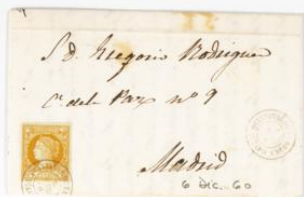 S. D. Gregorio Rodriguez
C. de la Paz nº 9
Madrid
6 Dic. 60